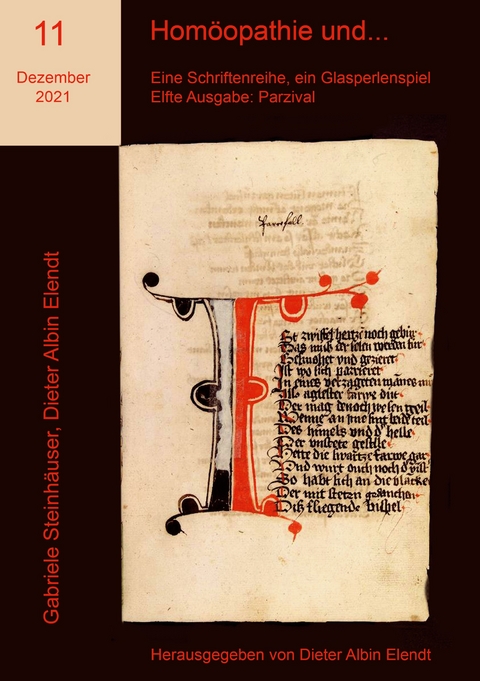 11
Dezember
2021
Homöopathie und...
Eine Schriftenreihe, ein Glasperlenspiel
Elfte Ausgabe: Parzival
Gabriele Steinhäuser, Dieter Albin Elendt
St zwiffel hertze noch gebur
Das muß der selen werden sur
Gesmohet vnd gezieret
Ist wo sich parrieret
In eines verzageten
Als aglester farwe dut
Der mag denoch wesen geil
Wenne an ime sint beide teil
Des himels vnd d' helle
Der vnstete geselle
Hette die swartze farwe gar
Vnd wurt ouch noch
So habt sich an die blancke
Der mit stetzen
Dis fliegende
Herausgegeben von Dieter Albin Elendt